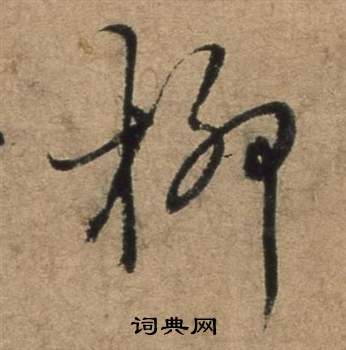 柳
词典网